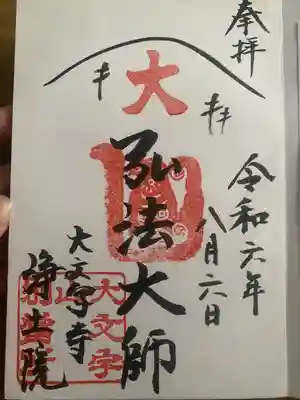 奉拝
令和六年
八月六日
大
弘法大師
大文字寺
浄土院